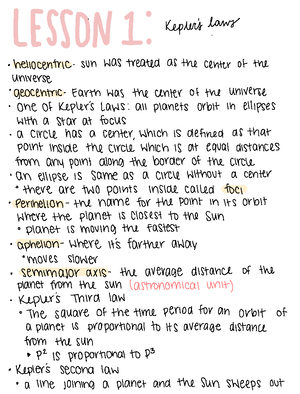 LESSON 1:
Kepler's laws
• heliocentric- sun was treated as the center of the
universe
• geocentric- Earth was the center of the universe
• One of Kepler's Laws: all planets orbit in ellipses
with a star at focus
• a circle has a center, which is defined as that
point inside the circle which is at equal distances
from any point along the border of the circle
• An ellipse is same as a circle without a center
• there are two points inside called foci
• Perihelion- the name for the point in its orbit
where the planet is closest to the sun
• planet is moving the fastest
• aphelion- where it's farther away
• moves slower
• semimajor axis- the average distance of the
planet from the sun (astronomical unit)
• Kepler's Third law
• The square of the time period for an orbit of
a planet is proportional to its average distance
from the sun
• P² is proportional to D³
• Kepler's second law
• a line joining a planet and the sun sweeps out